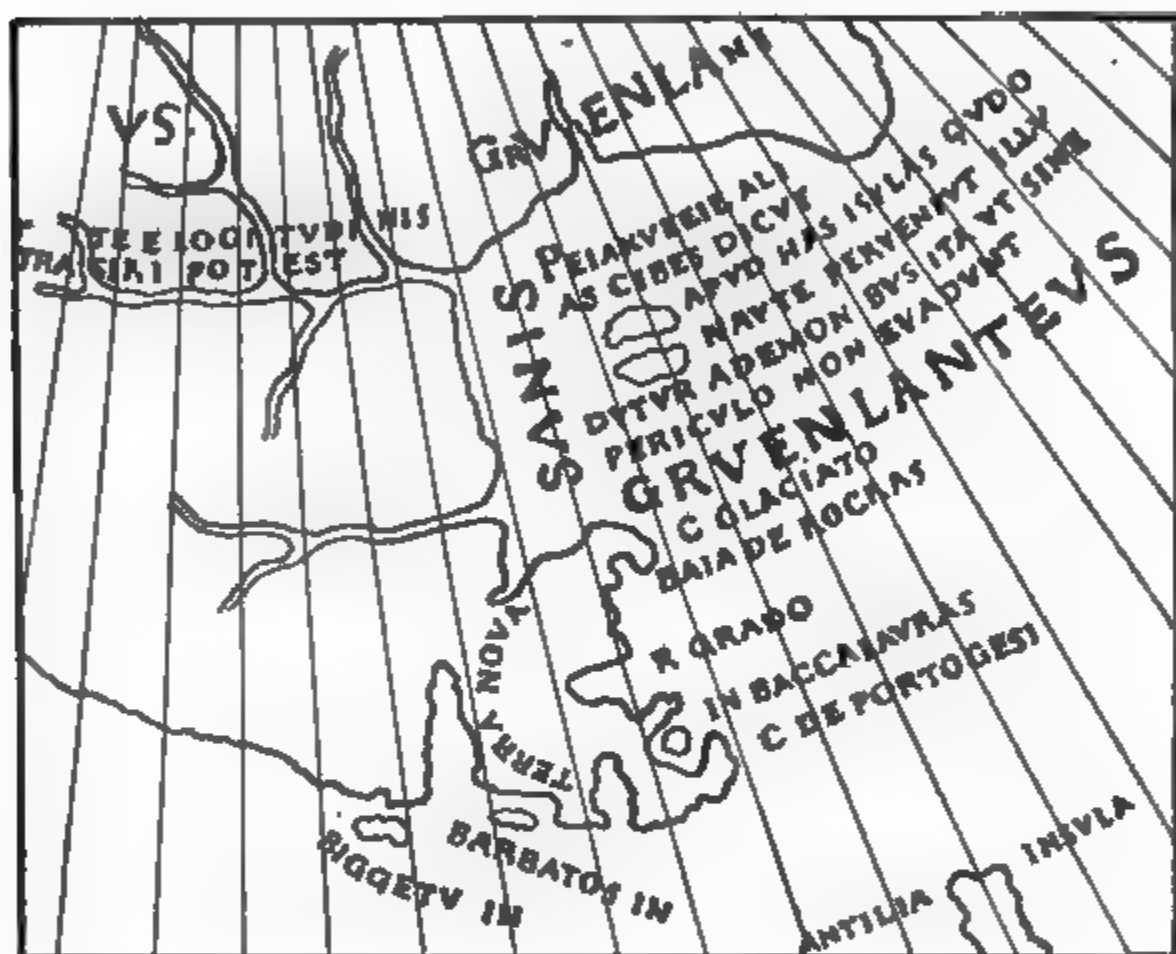 VS.
GRVENLANT
TE E LOGN TVDI NIS
TRASIRI POTEST
PEIANVERIE AL
AS CIBES DICVT
APVD HAS ISVLAS QVDO
NAVTE PERVENIVT ILLV
DVTVR ADEMON BVS ITA VT SINE
PERICVLO NON EVADVNT
SINVS
GRVENLANTEVS
C GLACIATO
BAIA DE ROCHAS
TERRA NOVA
R GRADO
IN BACCALAVRAS
C DE PORTOGESI
BARBATOS IN
BIGGETV IN
ANTILIA INSVLA